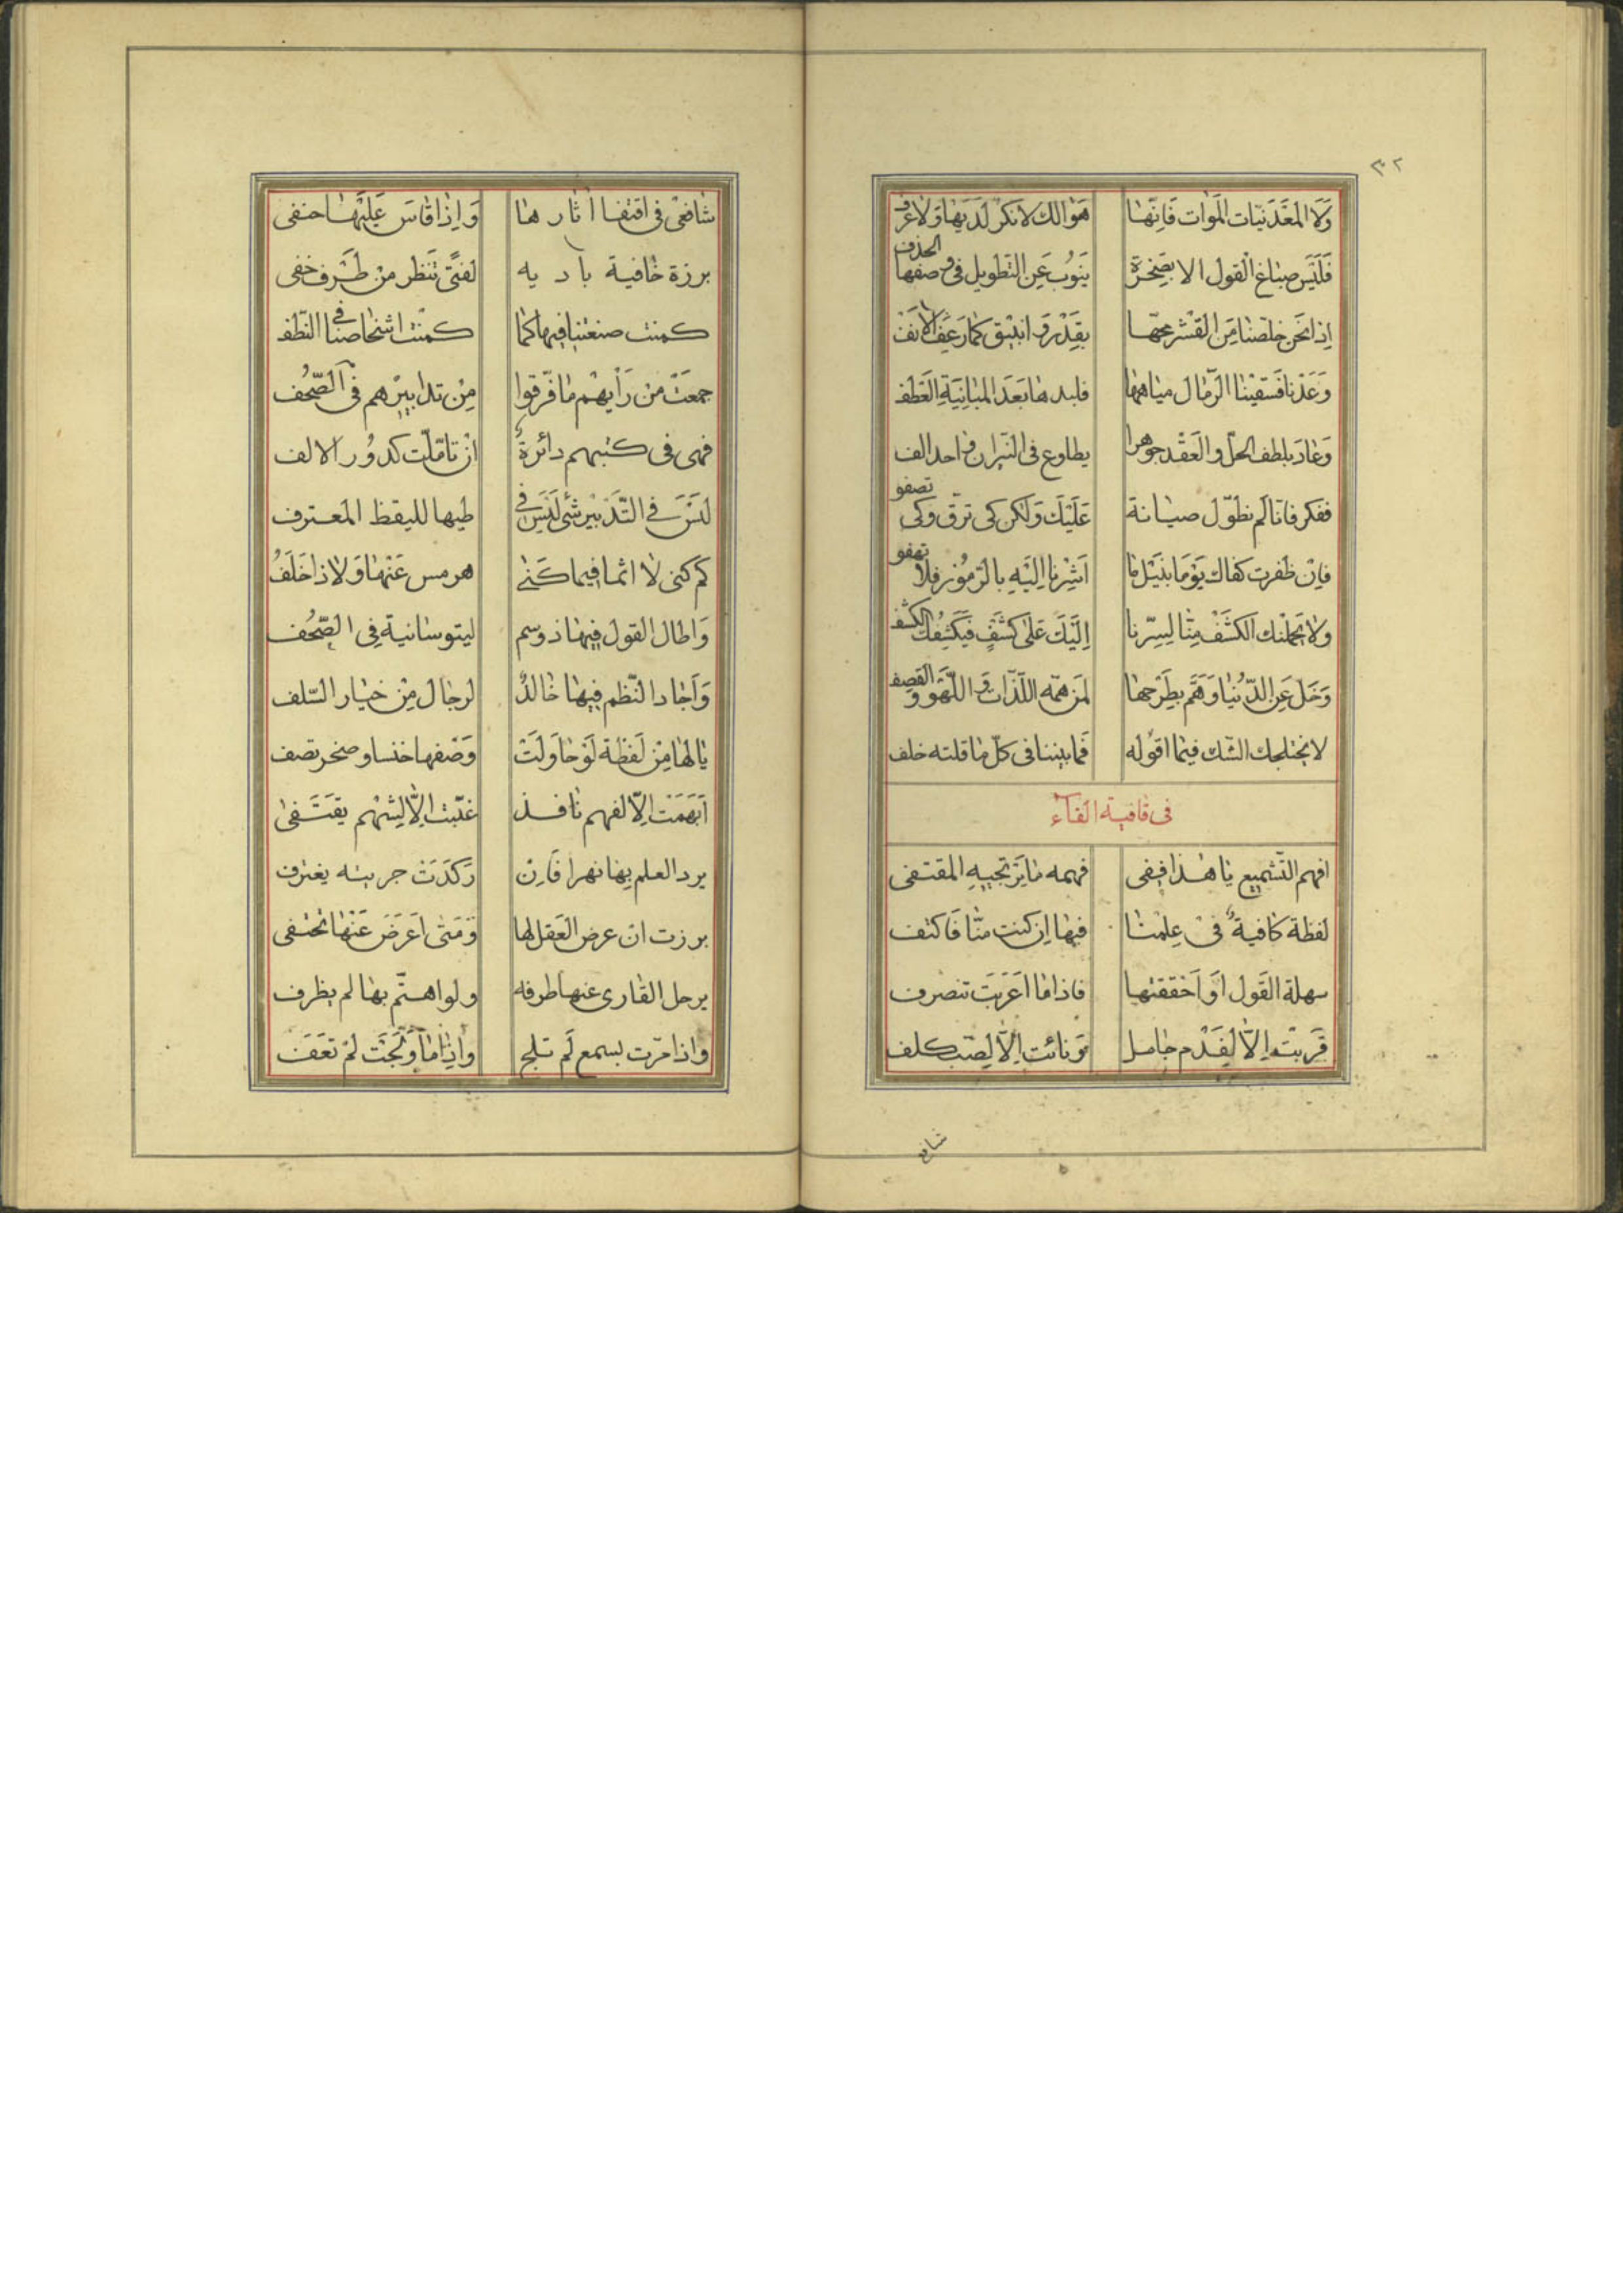 ٣٢
وَلَا المَعْدَنيّات المَوات فَانّها هَوَالك لا نكر لَدَيها وَلا عرف
فَلَيسَ صباغ القول الا بصَخرَة يَنوُب عَن التّطويل فى وصفها الحذف
اِذا نَحن خلّصنا مِن القشر مخّها بقِدْر وَانبيق كما رَعَفَ الانف
وَعَدنا فَسقيْنا الرّمال مياهها فلبدها بَعدَ المبانيَة العَطف
وَعادَ بلطف الحلّ والعَقْد جوهرا يطاوع فى النّيران واحد الف
ففكر فانّا لم نطوّل صيانة عَلَيْكَ وَلكن كى ترقّ وكى تصفو
فاِنْ ظفرت كفاك يَوْمَا بنَيْل ما اَشرْنا اِليَه بالرّموُز فلا تهفو
ولا يحملنك الكشف مِنّا لِسرّنا اِلَيْكَ عَلى كشفٍ فيَكشِفُك الكشف
وَخل عَنِ الدّنيا وَهَم بطَرحها لمَن همّه اللّذات وَ اللّهْوُ و القصف
لا يختلجك الشّك فيما اقوله فَما بيننا فى كلّ ما قلته خلف
فى قافية الفاء
افهم التّشميع يا هذا ففى فهمه ما يَرتجيهِ المقتفى
لفظة كافية فى عِلمنا فيها اِن كنت منّا فَاكتف
سهلة القَول اَو اَخفقتها فاذا ما اَعرَبَت تنصرف
قَربَتْ اِلاّ لِفَدْم جاهل وَنائت اِلاّ لِصَبّ كلف
شافع
شافعىّ فى اقتفا اثارها وَاِذا قاسَ عَليَها حنفى
برزة خافية باديه لفتًى تنظر من طَرف خفى
كمنت صنعتنا فيها كما كمنت اشخاصنا فى النّطف
جمعَتْ من رَأيهم ما فرّقوا مِن تدابيرهم فى الصّحُف
فهى فى كتبهم دائرةٌ ان تامّلت كدوُر الالف
لَيْسَ فى التّدْبير شىْ لَيْسَ فى طيها لليقظ المعترف
كم كنى لا اثما فيما كَنى هرمس عَنها وَلا ذا خَلَفُ
وَاطال القول فيها ذوسم ليتوسانية فى الصّحُف
وَاَجادا لنّظم فيها خالدٌ لرجال مِن خيار السّلف
يا لها مِن لفظَة لَو حاوَلَتْ وَصْفها خنسا و صخر تصف
اَبَهمَتْ اِلاّ لفهم نافذ غيّبت اِلاّ ليشْهم يقتَفى
يرد العلم بها نهرا فَاِن رَكدَتْ جريته يغترف
برزت ان عرض العَقل لها وَمَتى اَعرَضَ عَنْها تختفى
يرحل القارى عنها طرفه ولو اهتّم بها لم يظرف
واذا مرّت بسمع لَم تلج واِذا ما وَلَجَتْ لم تعَفَ